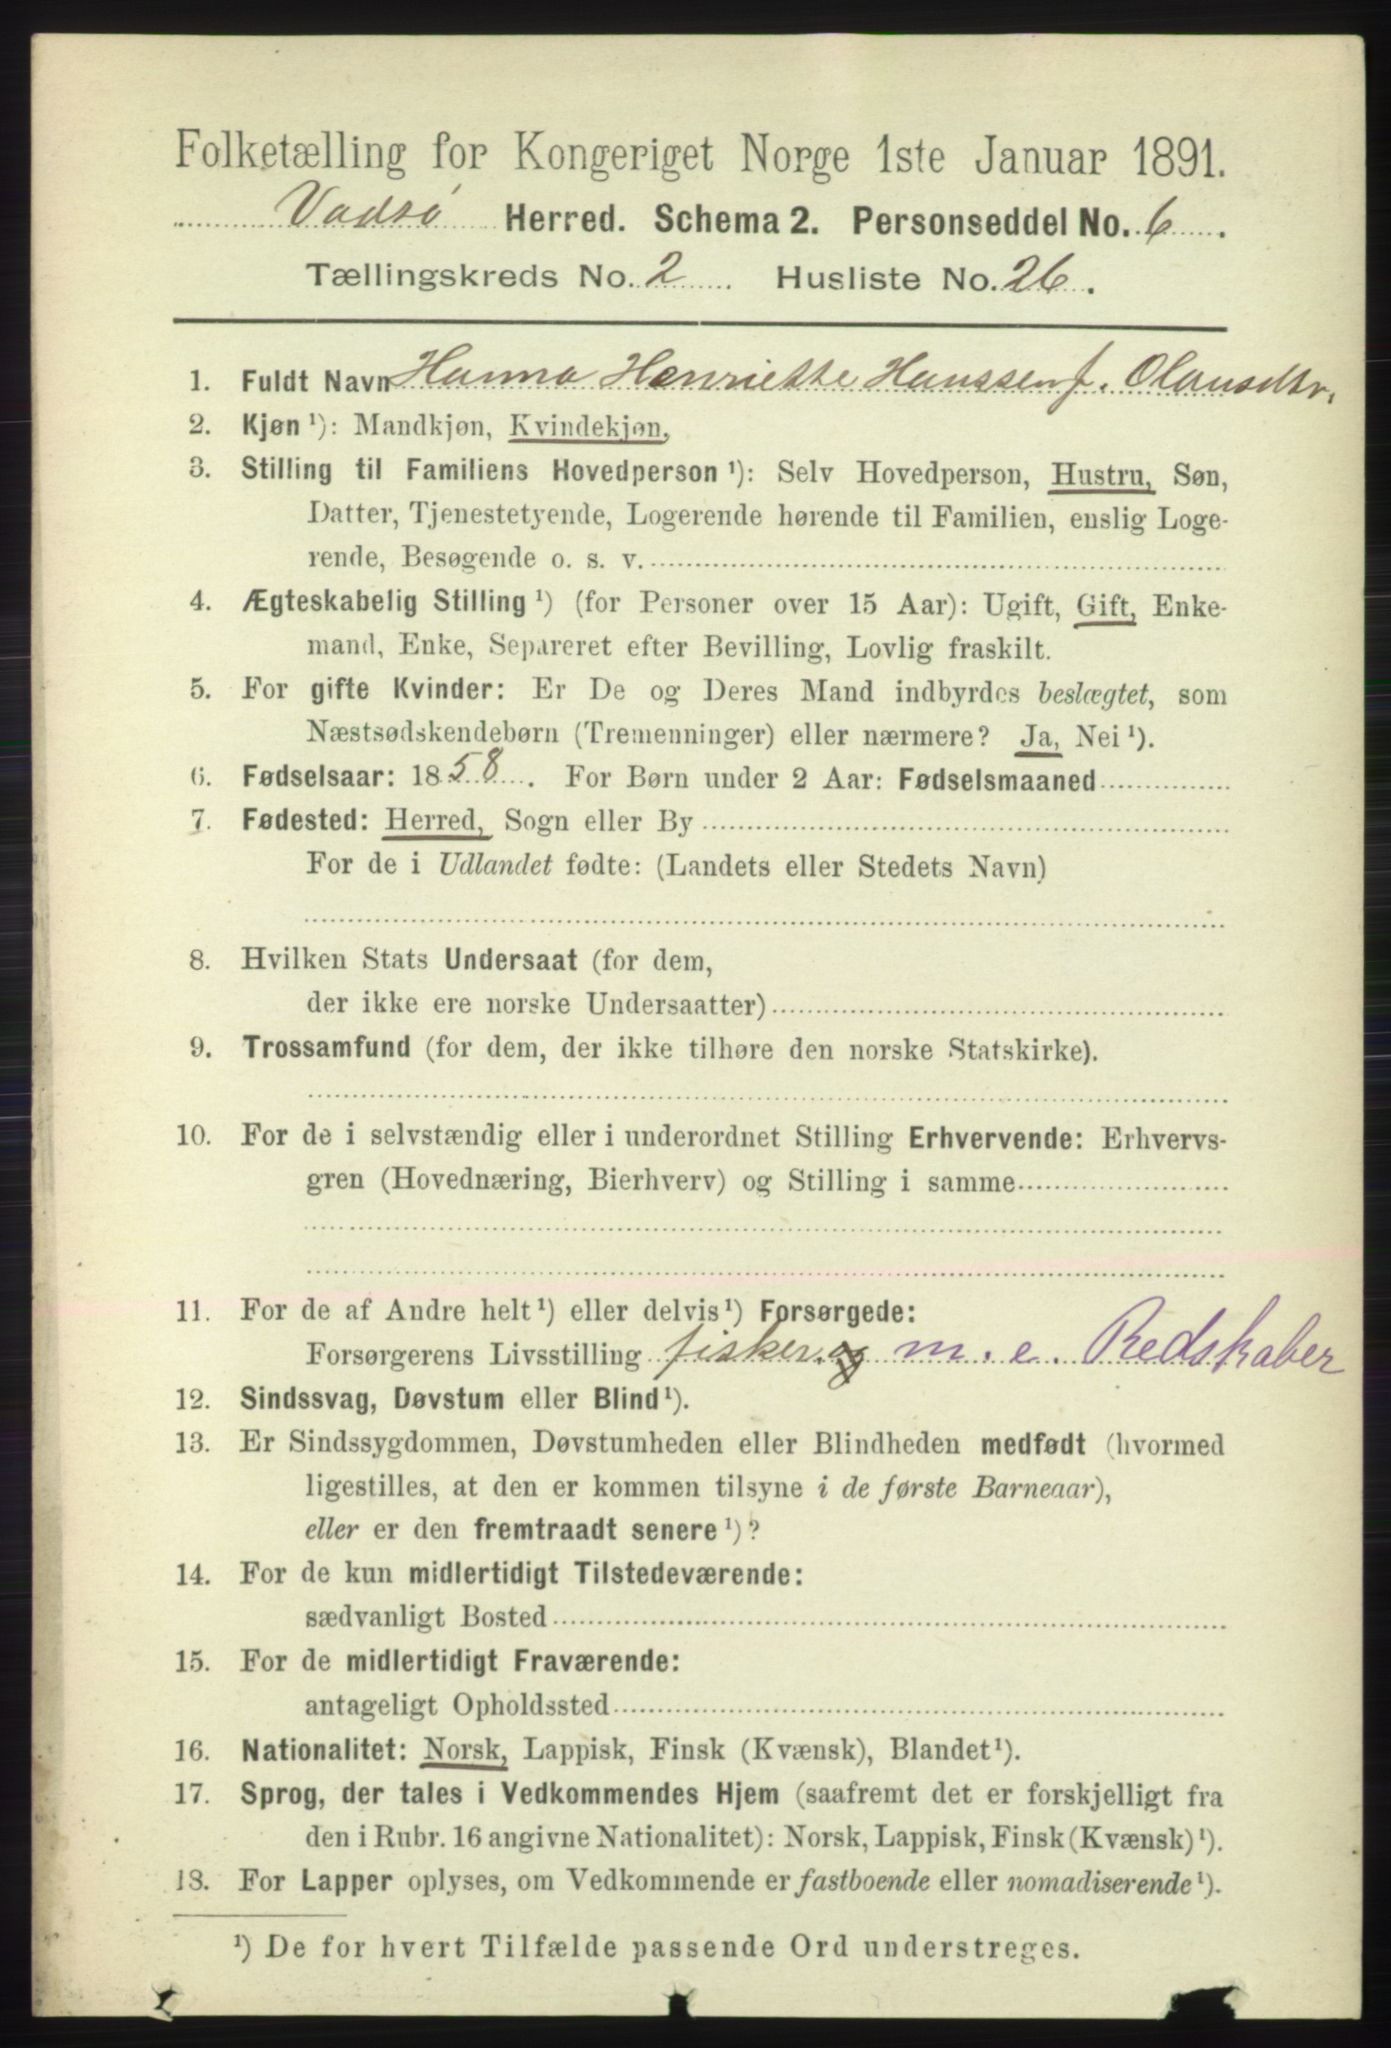 Folketælling for Kongeriget Norge 1ste Januar 1891.
Vadsø Herred. Schema 2. Personseddel No. 6.
Tællingskreds No. 2 Husliste No. 26.
1. Fuldt Navn Hanna Henriette Hanssen f. Olausdtr.
2. Kjøn ¹): Mandkjøn, Kvindekjøn,
3. Stilling til Familiens Hovedperson ¹): Selv Hovedperson, Hustru, Søn,
Datter, Tjenestetyende, Logerende hørende til Familien, enslig Loge-
rende, Besøgende o. s. v.
4. Ægteskabelig Stilling ¹) (for Personer over 15 Aar): Ugift, Gift, Enke-
mand, Enke, Separeret efter Bevilling, Lovlig fraskilt.
5. For gifte Kvinder: Er De og Deres Mand indbyrdes beslægtet, som
Næstsødskendebørn (Tremenninger) eller nærmere? Ja, Nei ¹).
6. Fødselsaar: 1858. For Børn under 2 Aar: Fødselsmaaned
7. Fødested: Herred, Sogn eller By
For de i Udlandet fødte: (Landets eller Stedets Navn)
8. Hvilken Stats Undersaat (for dem,
der ikke ere norske Undersaatter)
9. Trossamfund (for dem, der ikke tilhøre den norske Statskirke).
10. For de i selvstændig eller i underordnet Stilling Erhvervende: Erhvervs-
gren (Hovednæring, Bierhverv) og Stilling i samme
11. For de af Andre helt ¹) eller delvis ¹) Forsørgede:
Forsørgerens Livsstilling fisker og m. e. Redskaber
12. Sindssvag, Døvstum eller Blind ¹).
13. Er Sindssygdommen, Døvstumheden eller Blindheden medfødt (hvormed
ligestilles, at den er kommen tilsyne i de første Barneaar),
eller er den fremtraadt senere ¹)?
14. For de kun midlertidigt Tilstedeværende:
sædvanligt Bosted
15. For de midlertidigt Fraværende:
antageligt Opholdssted
16. Nationalitet: Norsk, Lappisk, Finsk (Kvænsk), Blandet ¹).
17. Sprog, der tales i Vedkommendes Hjem (saafremt det er forskjelligt fra
den i Rubr. 16 angivne Nationalitet): Norsk, Lappisk, Finsk (Kvænsk) ¹).
18. For Lapper oplyses, om Vedkommende er fastboende eller nomadiserende ¹).
¹) De for hvert Tilfælde passende Ord understreges.